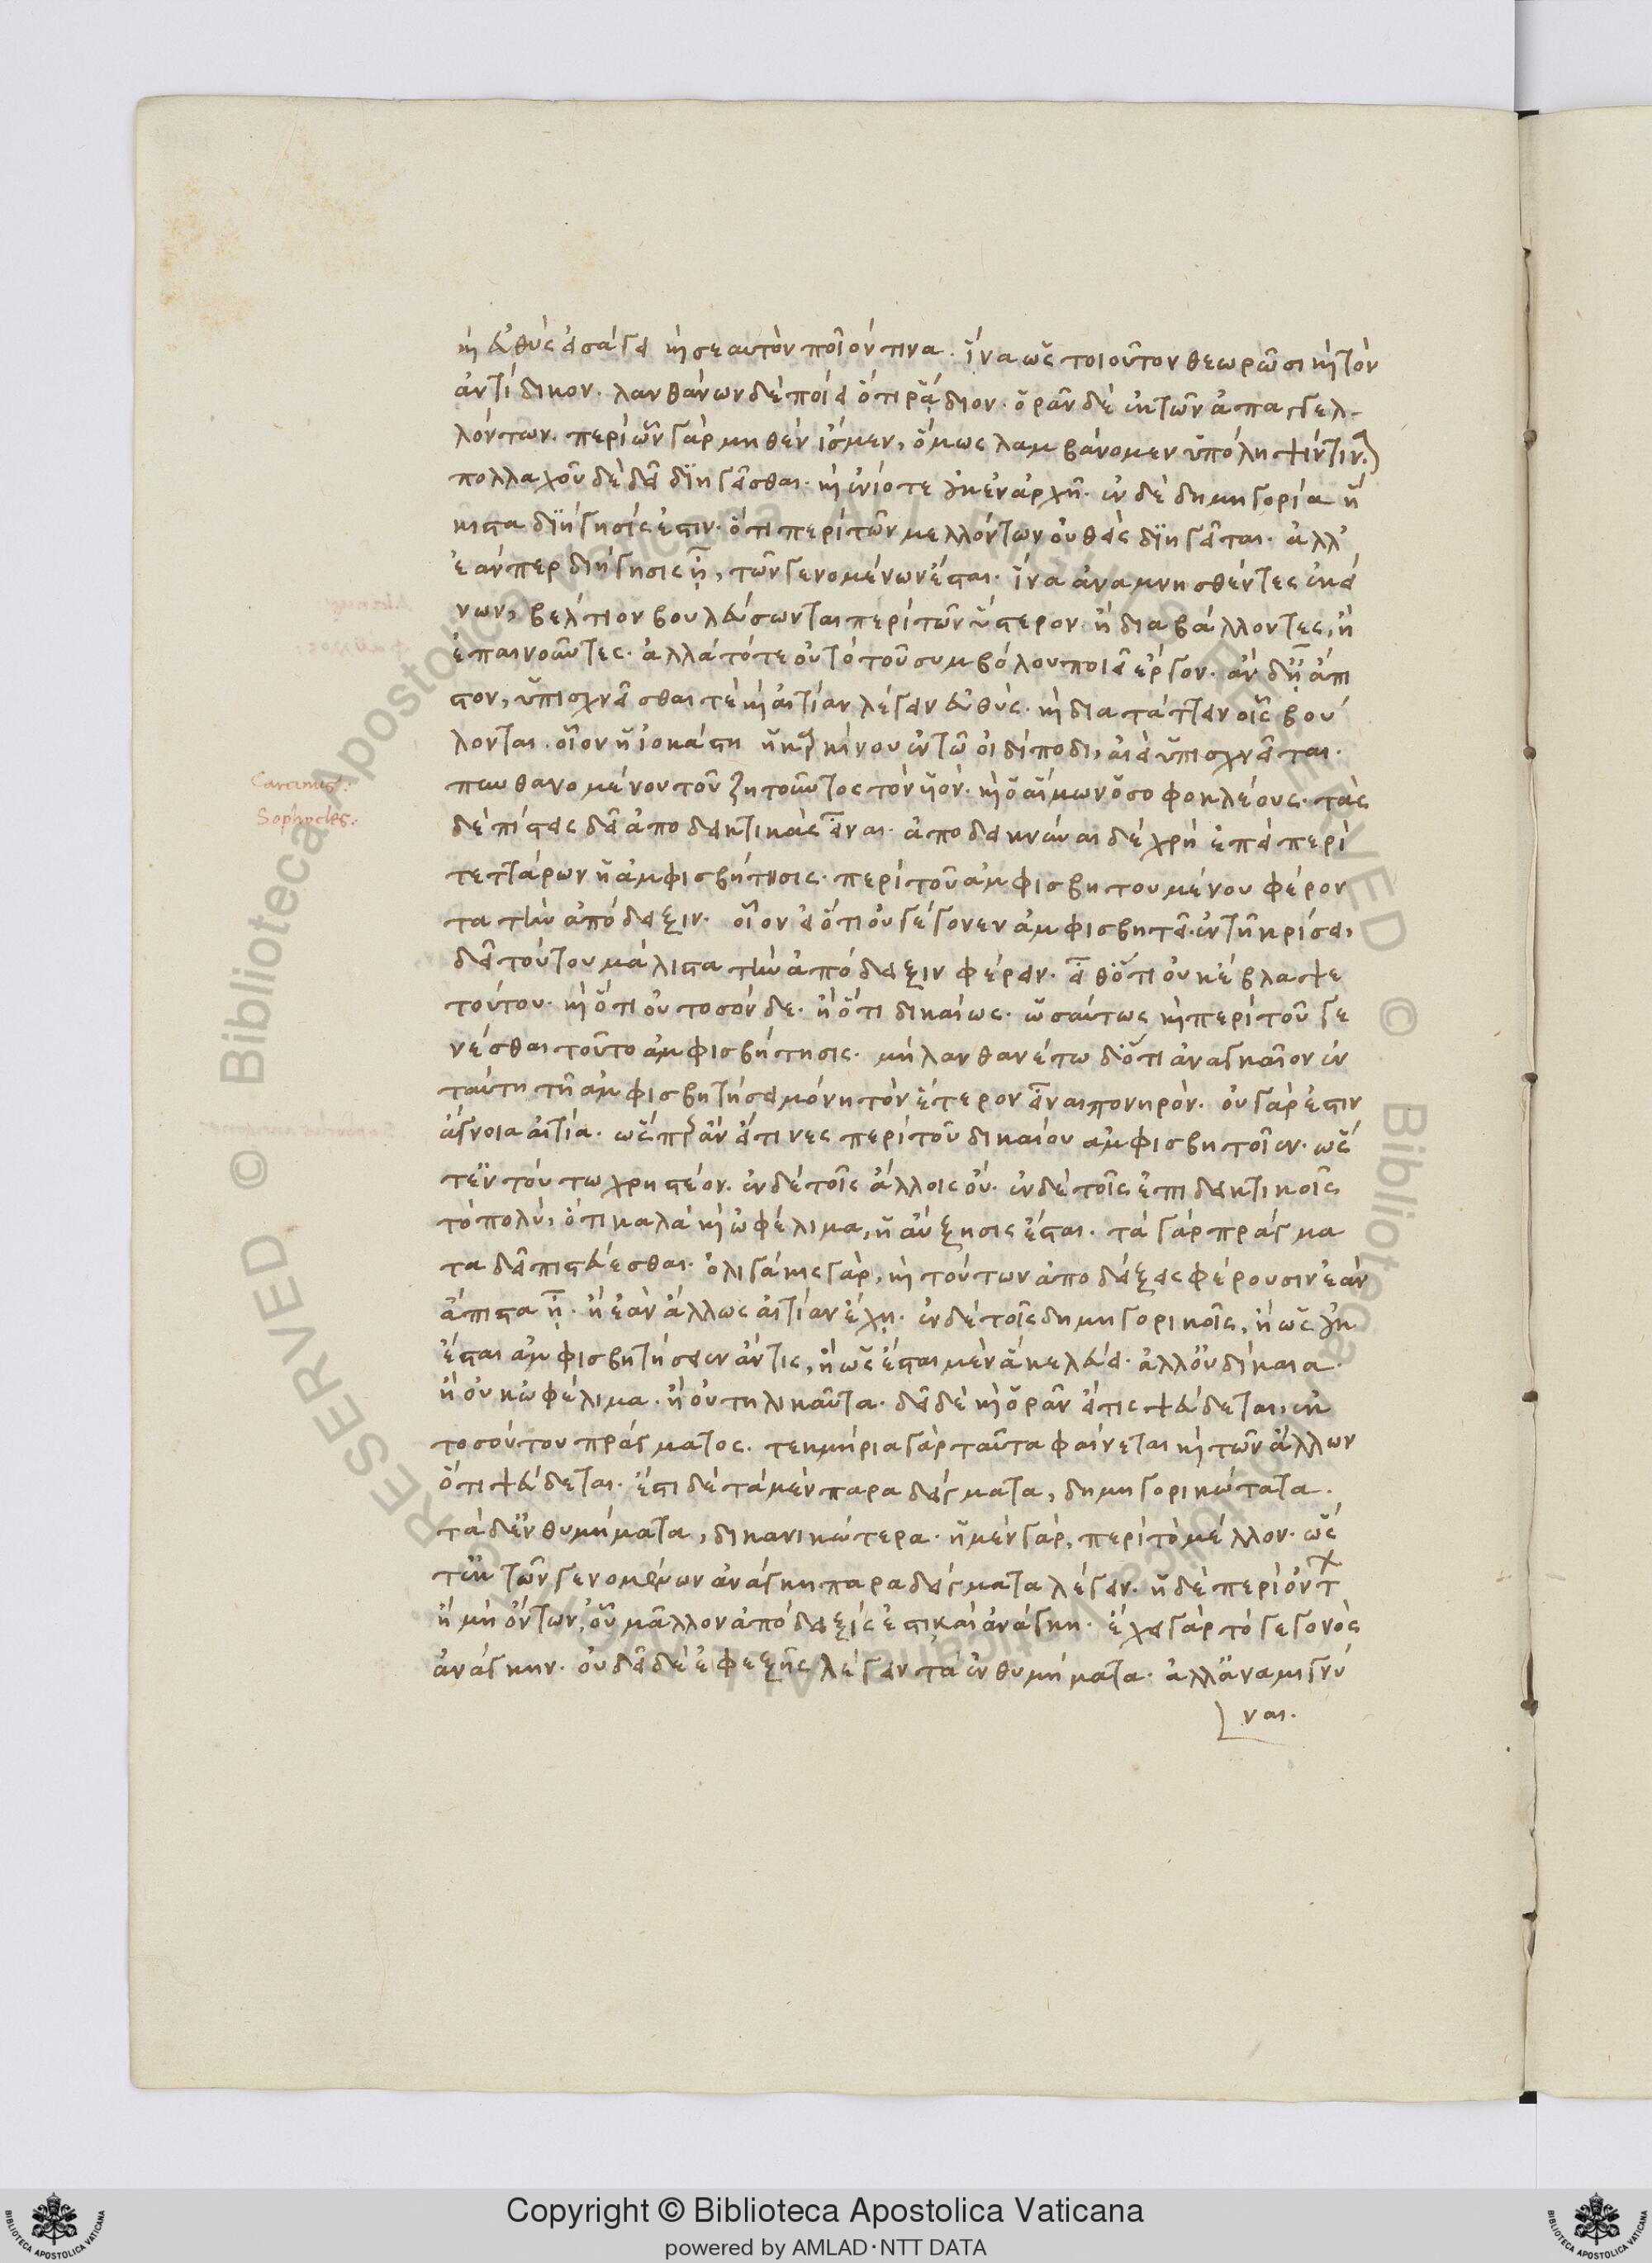 κỳ εὐθὺς εἰσάγει κỳ σεαυτὸν ποῖόν τινα. ἵνα ὡς τοιοῦτον θεωρῶσι κỳ τὸν
ἀντίδικον. λανθάνων δὲ ποίει ὅτι ῥάδιον. ὁρᾶν δὲ ἐκ τῶν ἀπαγγελ
λόντων. περὶ ὧν γὰρ μηθὲν ἴσμεν, ὅμως λαμβάνομεν ὑπόληψίν τινα.
πολλαχοῦ δὲ δεῖ διηγεῖσθαι. κỳ ἐνίοτε οὐκ ἐν ἀρχῇ. ἐν δὲ δημηγορία ἥ
κιστα διήγησίς ἐστιν. ὅτι περὶ τῶν μελλόντων οὐθεὶς διηγεῖται. ἀλλ'
ἐάνπερ διήγησις ᾖ, τῶν γενομένων ἔσται. ἵνα ἀναμνησθέντες ἐκεί
νων, βέλτιον βουλεύσωνται περὶ τῶν ὕστερον. ἢ διαβάλλοντες, ἢ
ἐπαινοῦντες. ἀλλὰ τότε οὐ τὸ τοῦ συμβόλου ποιεῖ ἔργον. ἂν δ' ᾖ ἄπι
στον, ὑπισχνεῖσθαι τὲ κỳ αἰτίαν λέγειν εὐθύς. κỳ διατάττειν οἷς βού
λονται. οἷον ἡ ἰοκάστη ἡ καρκίνου ἐν τῶ οἰδίποδι, ἀεὶ ὑπισχνεῖται.
Carcinus:
πυνθανομένου τοῦ ζητοῦντος τὸν υἱόν. κỳ ὁ αἵμων ὁ σοφοκλέους. τὰς
Sophocles:
δὲ πίστεις δεῖ ἀποδεικτικὰς εἶναι. ἀποδεικνύναι δὲ χρὴ ἐπεὶ περὶ
τεττάρων ἡ ἀμφισβήτησις. περὶ τοῦ ἀμφισβητουμένου φέρον
τα τὴν ἀπόδειξιν. οἷον εἰ ὅτι οὐ γέγονεν ἀμφισβητεῖ ἐν τῆ κρίσει,
δεῖ τούτου μάλιστα τὴν ἀπόδειξιν φέρειν. εἶθ' ὅτι οὐκ ἔβλαψε
τούτου. κỳ ὅτι οὐ τοσόνδε. ἢ ὅτι δικαίως. ὡσαύτως κỳ περὶ τοῦ γε
νέσθαι τοῦτο ἀμφισβήτησις. μὴ λανθανέτω δ' ὅτι ἀναγκαῖον ἐν
ταύτη τῆ ἀμφισβητήσει μόνη τὸν ἕτερον εἶναι πονηρόν. οὐ γάρ ἐστιν
ἄγνοια αἰτία. ὥσπερ ἂν εἴ τινες περὶ τοῦ δικαίου ἀμφισβητοῖεν. ὥς
τ' ἐν τούτω χρηστέον. ἐν δὲ τοῖς ἄλλοις οὔ. ἐν δὲ τοῖς ἐπιδεικτικοῖς
τὸ πολύ, ὅτι καλὰ κỳ ὠφέλιμα, ἡ αὔξησις ἔσται. τὰ γὰρ πράγμα
τα δεῖ πιστεύεσθαι. ὀλιγάκις γὰρ, κỳ τούτων ἀποδείξεις φέρουσιν ἐὰν
ἄπιστα ᾖ. ἢ ἐὰν ἄλλως αἰτίαν ἔχῃ. ἐν δὲ τοῖς δημηγορικοῖς, ἢ ὡς οὐκ
ἔσται ἀμφισβητήσειεν ἄν τις, ἢ ὡς ἔσται μὲν ἃ κελεύει. ἀλλ' οὐ δίκαια.
ἢ οὐκ ὠφέλιμα. ἢ οὐ τηλικαῦτα. δεῖ δὲ κỳ ὁρᾶν εἴ τις ψεύδεται, ἐκ
τοσούτου πράγματος. τεκμήρια γὰρ ταῦτα φαίνεται κỳ τῶν ἄλλων
ὅτι ψεύδεται. ἔστι δὲ τὰ μὲν παραδείγματα, δημηγορικώτατα.
τὰ δ' ἐνθυμήματα, δικανικώτερα. ἡ μὲν γὰρ, περὶ τὸ μέλλον. ὥς
τ' ἐκ τῶν γενομένων ἀνάγκη παραδείγματα λέγειν. ἡ δὲ περὶ ὄντων
ἢ μὴ ὄντων, οὗ μᾶλλον ἀπόδειξίς ἐστι καὶ ἀνάγκη. ἔχει γὰρ τὸ γεγονὸς
ἀνάγκην. οὐ δεῖ δὲ ἐφεξῆς λέγειν τὰ ἐνθυμήματα. ἀλλ' ἀναμιγνύ
ναι.
Copyright © Biblioteca Apostolica Vaticana
powered by AMLAD·NTT DATA